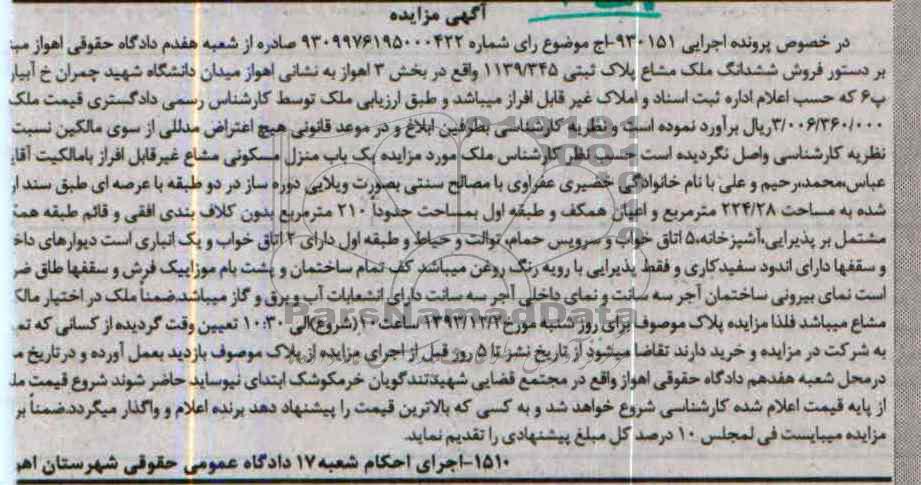 آگهی مزایده
در خصوص پرونده اجرایی ۹۳۰۱۵۱-اج موضوع رای شماره ۹۳۰۹۹۷۶۱۹۵۰۰۰۴۲۲ صادره از شعبه هفدم دادگاه حقوقی اهواز
بر دستور فروش ششدانگ ملک مشاع پلاک ثبتی ۱۱۳۹/۳۴۵ واقع در بخش ۳ اهواز به نشانی اهواز میدان دانشگاه شهید چمران خ
پ۶ که حسب اعلام اداره ثبت اسناد و املاک غیر قابل افراز میباشد و طبق ارزیابی ملک توسط کارشناس رسمی دادگستری قیمت ملک
۳/۰۰۶/۳۶۰/۰۰۰ریال برآورد نموده است و نظریه کارشناسی بطرفین ابلاغ و در موعد قانونی هیچ اعتراض مدللی از سوی مالکین نسبت
نظریه کارشناسی واصل نگردیده است حسب نظر کارشناس ملک مورد مزایده یک باب منزل مسکونی مشاع غیرقابل افراز بامالکیت
عباس،محمد،رحیم و علی با نام خانوادگی خضیری عفراوی با مصالح سنتی بصورت ویلایی دوره ساز در دو طبقه با عرصه ای طبق سند
شده به مساحت ۲۲۴/۲۸ مترمربع و اعیان همکف و طبقه اول بمساحت حدوداً ۲۱۰ مترمربع بدون کلاف بندی افقی و قائم طبقه
مشتمل بر پذیرایی،آشپزخانه،۵ اتاق خواب و سرویس حمام، توالت و حیاط و طبقه اول دارای ۲ اتاق خواب و یک انباری است دیوارهای
و سقفها دارای اندود سفیدکاری و فقط پذیرایی با رویه رنگ روغن میباشد کف تمام ساختمان و پشت بام موزاییک فرش و سقفها طاق
است نمای بیرونی ساختمان آجر سه سانت و نمای داخلی آجر سه سانت دارای انشعابات آب و برق و گاز میباشد.ضمناً ملک در اختیار
مشاع میباشد فلذا مزایده پلاک موصوف برای روز شنبه مورخ۱۳۹۳/۱۲/۲ ساعت۱۰(شروع)الی ۱۰:۳۰ تعیین وقت گردیده از کسانی که
به شرکت در مزایده و خرید دارند تقاضا میشود از تاریخ نشر تا ۵ روز قبل از اجرای مزایده از پلاک موصوف بازدید بعمل آورده و درتاریخ
درمحل شعبه هفدهم دادگاه حقوقی اهواز واقع در مجتمع قضایی شهیدتندگویان خرمکوشک ابتدای نیوساید حاضر شوند شروع قیمت
از پایه قیمت اعلام شده کارشناسی شروع خواهد شد و به کسی که بالاترین قیمت را پیشنهاد دهد برنده اعلام و واگذار میگردد.ضمناً
مزایده میبایست فی لمجلس ۱۰ درصد کل مبلغ پیشنهادی را تقدیم نماید.
۱۵۱۰-اجرای احکام شعبه۱۷ دادگاه عمومی حقوقی شهرستان
ParsNamadData